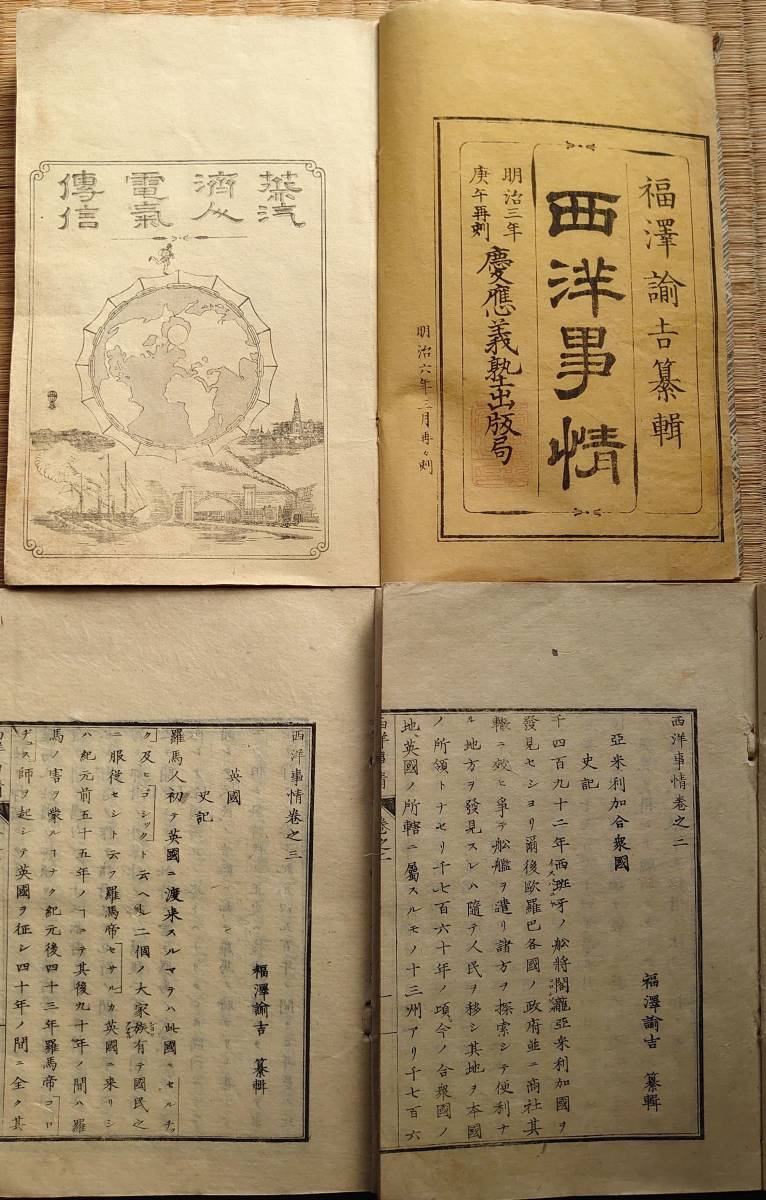 福澤諭吉纂輯
西洋事情
明治三年
庚午再刻
慶應義塾出版局
明治六年三月再々刻
蒸汽
濟人
電氣
傳信
西洋事情卷之二
福澤諭吉 纂輯
亞米利加合衆國
史記
千四百九十二年西班牙ノ舩將閣龍亞米利加國ヲ
發見セシヨリ爾後歐羅巴各國ノ政府並ニ商社其
轍ニ效ヒ爭テ舩艦ヲ遣リ諸方ヲ探索シテ便利ナ
ル地方ヲ發見スレハ隨テ人民ヲ移シ其地ヲ本國
ノ所領トナセリ千七百六十年ノ頃今ノ合衆國ノ
地英國ノ所轄ニ屬スルモノ十三州アリ千七百六
西洋事情 卷之二
西洋事情卷之三
福澤諭吉 纂輯
英國
史記
羅馬人初テ英國ニ渡来スルマテハ此國ニセルチッ
ク及ヒゴシックト云ヘル二個ノ大家族有テ國民之
ニ服從セシト云フ羅馬帝セサルカ英國ニ来リシ
ハ紀元前五十五年ノヿニテ其後九十年ノ間ハ羅
馬ノ害ヲ蒙ルヿナク紀元後四十三年羅馬帝コロ
ヂュス師ヲ起シテ英國ヲ征シ四十年ノ間ニ全ク其